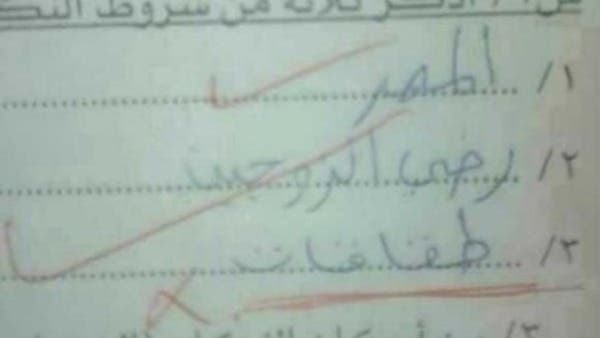 اذكر ثلاثة من شروط النكا
١/ المهر
٢/ رضى الزوجين
٣/ طقاقات